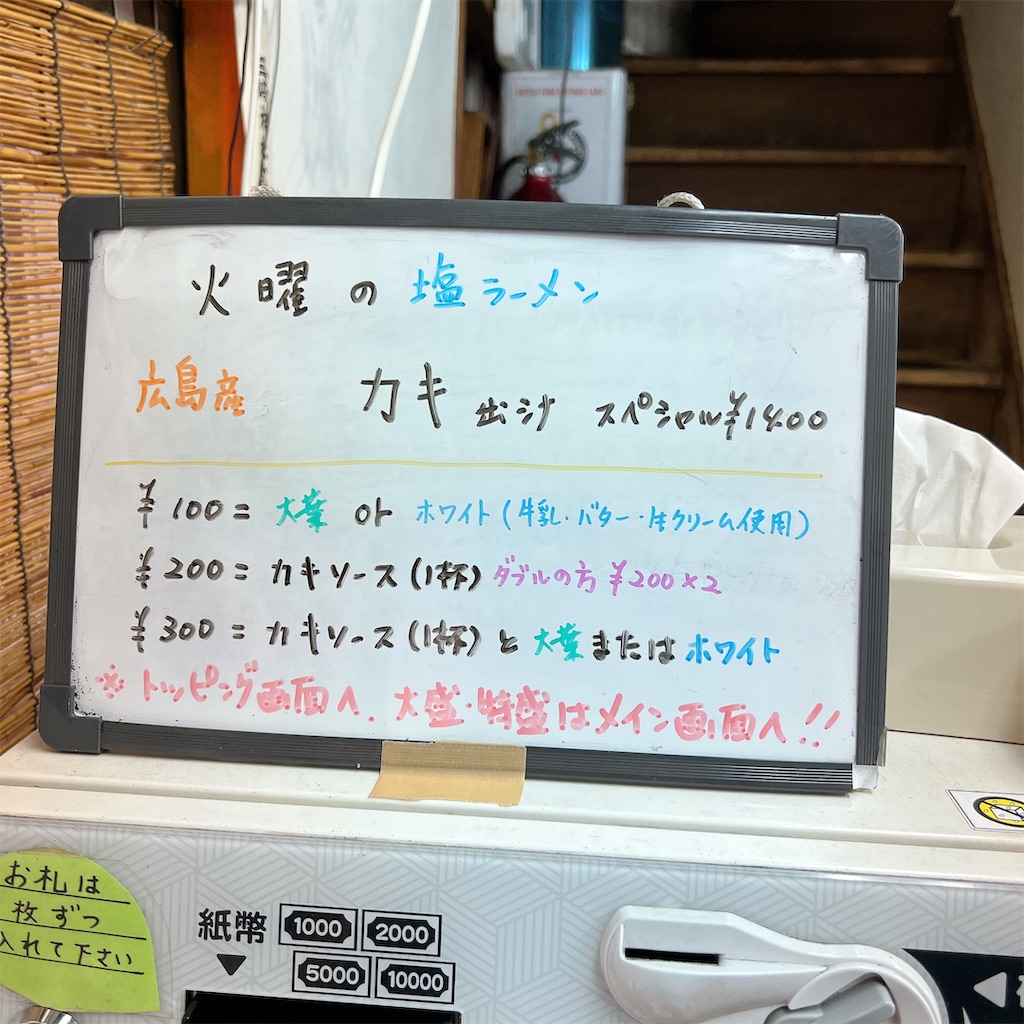 火曜の塩ラーメン
広島産 カキ出汐 スペシャル¥1400
¥100= 大葉 or ホワイト(牛乳・バター・生クリーム使用)
¥200= カキソース(1杯) ダブルの方 ¥200×2
¥300= カキソース(1杯)と大葉またはホワイト
※トッピング画面へ、大盛・特盛はメイン画面へ!!
お札は
枚ずつ
入れて下さい
紙幣 1000 2000
5000 10000